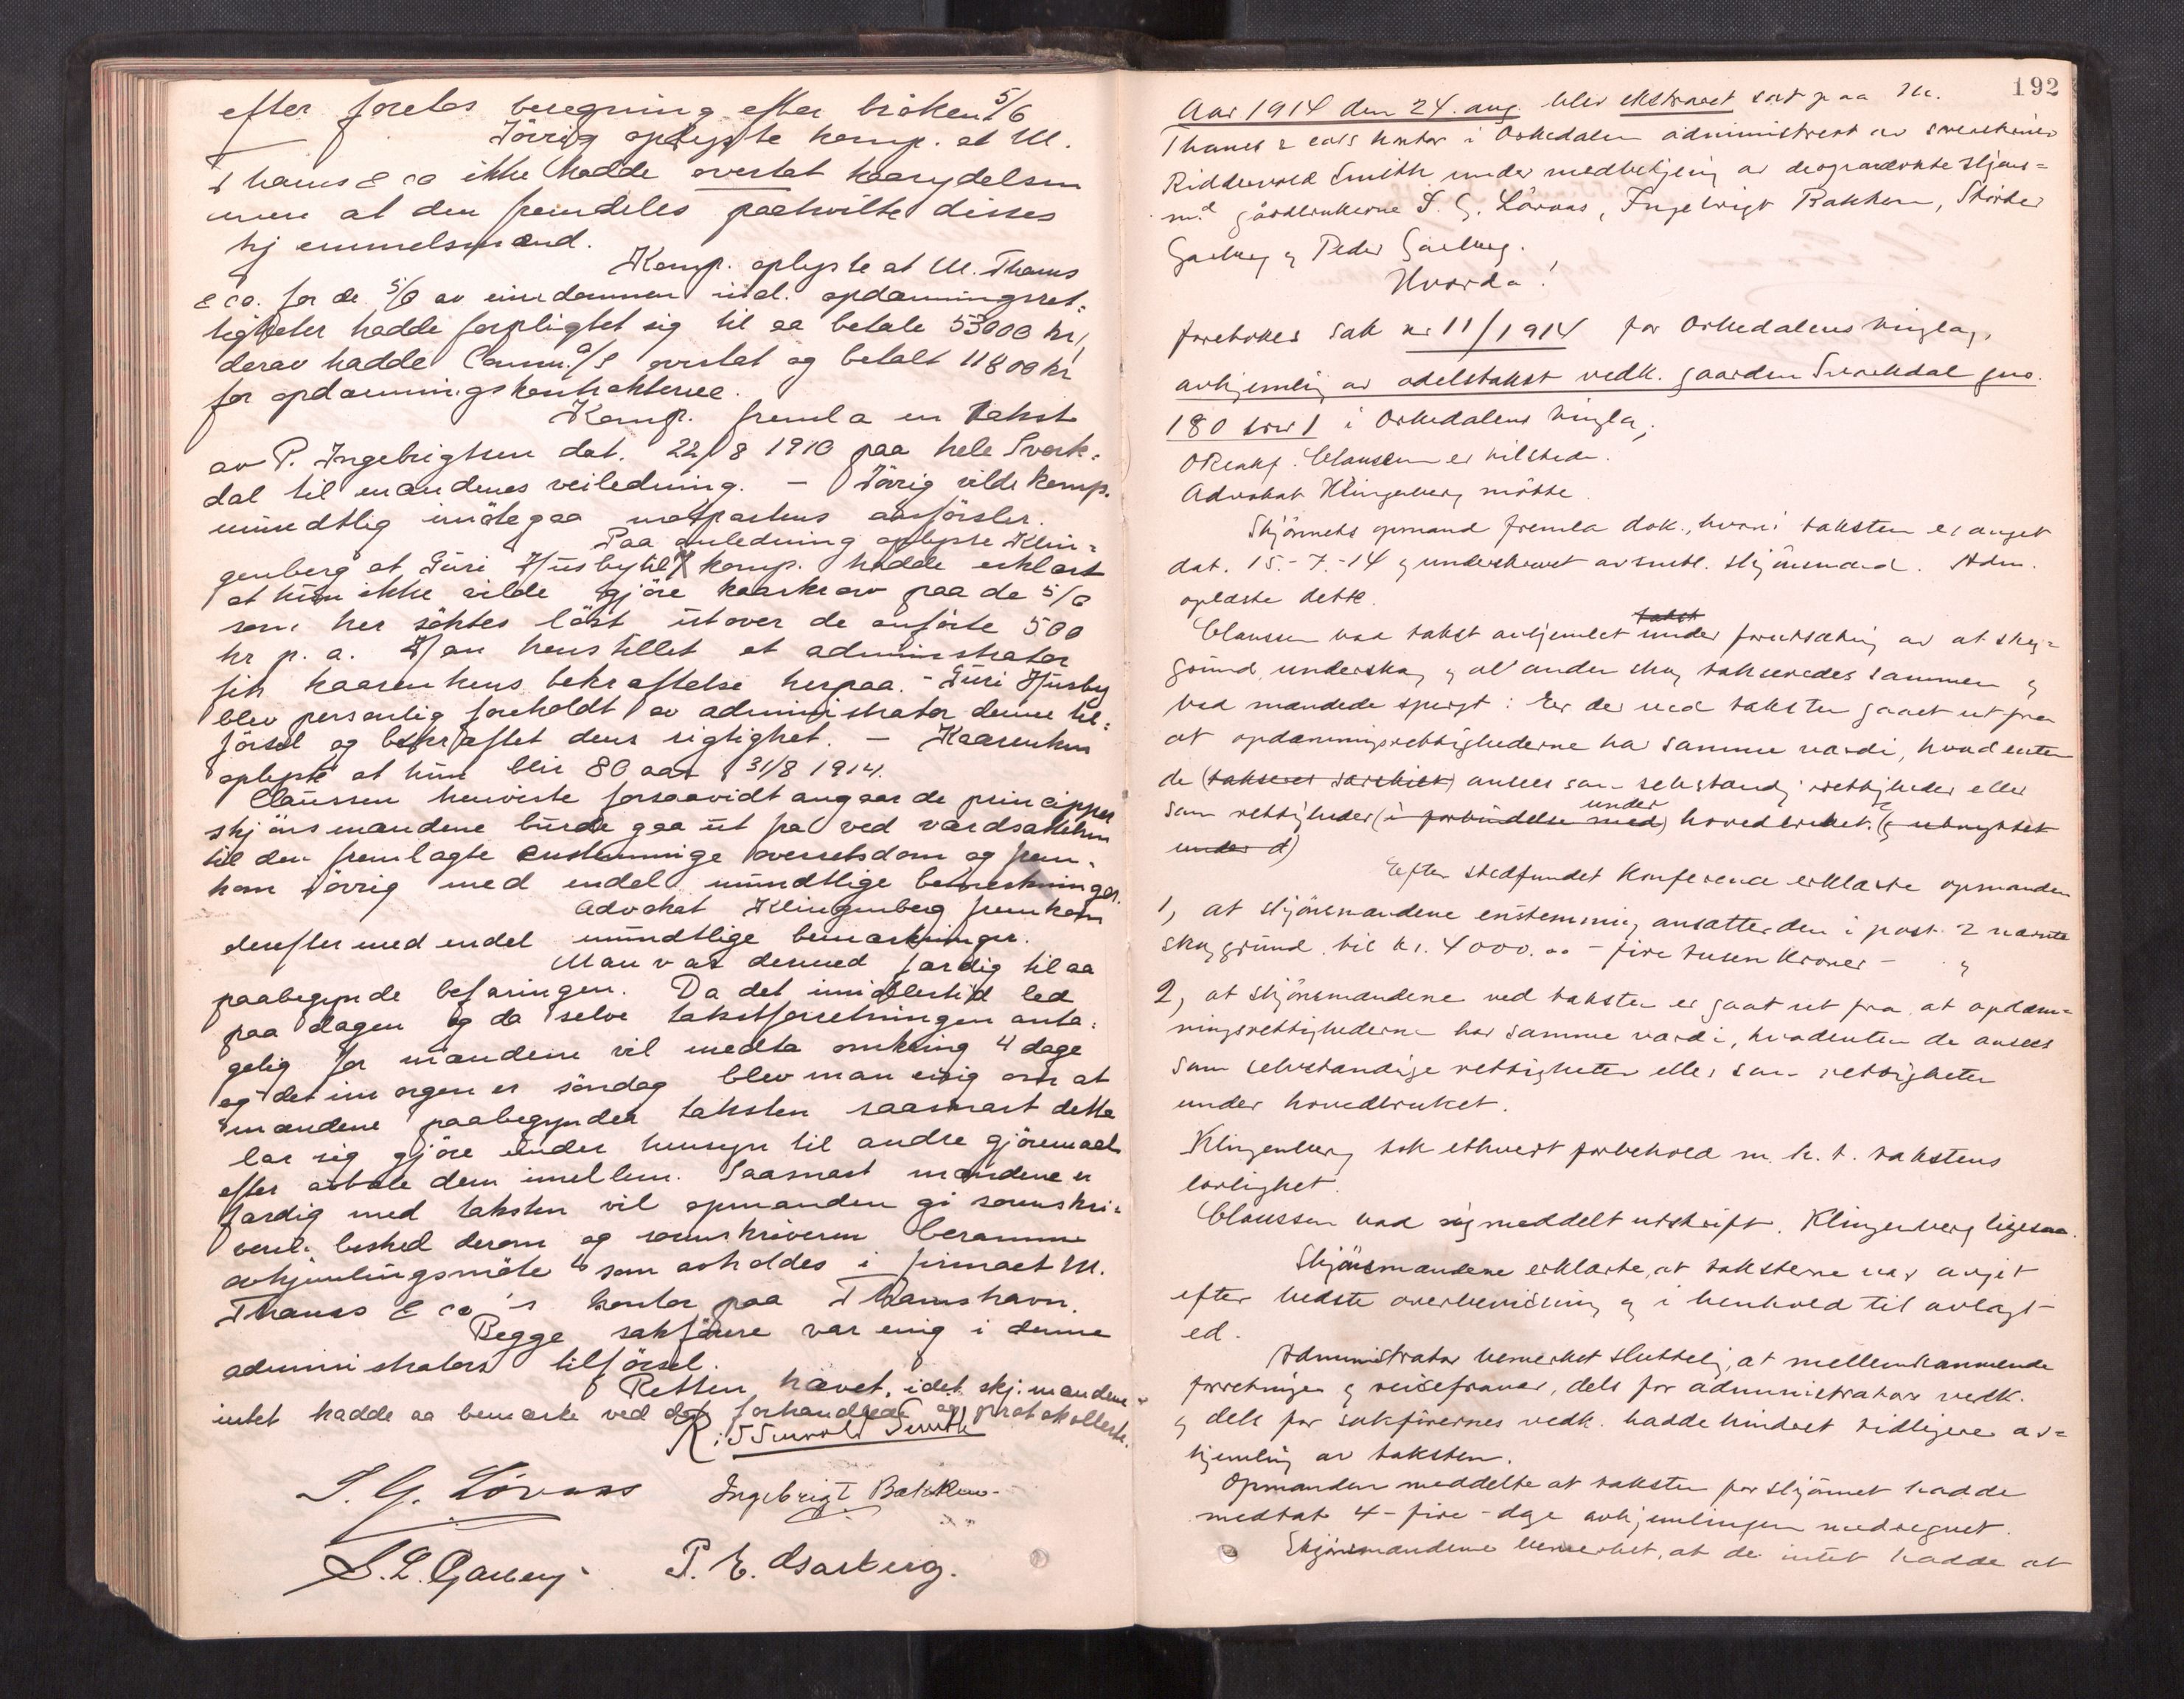 efter foretas beregning efter bröken 5/6
Iövrig oplyste komp. at M.
Thams & co ikke hadde overtat kaarydelsen
men at den fremdeles paahvilte disses
hjemmelsmænd.
Komp. oplyste at M. Thams
& co. for de 5/6 av eiendommen incl. opdæmningsret-
tigheter hadde forpligtet sig til aa betale 53000 kr,
derav hadde Comm. a/s overtat og betalt 11800 kr
for opdæmningskontrakterne.
Komp. fremla en takst
av P. Ingebrigtsen dat. 22/8 1910 paa hele Svork-
dal til mændenes veiledning. – Iövrig vilde komp.
mundtlig imötegaa motpartens anförsler.
Paa anledning oplyste Klin-
genberg at Guri Husby til komp. hadde erklært
at hun ikke vilde gjöre kaarkrav paa de 5/6
som her söktes löst utover de anförte 500
kr p. a. Han henstillet at administrator
fik kaarenkens bekræftelse herpaa. – Guri Husby
blev personlig foreholdt av administrator denne til-
försel og bekræftet dens rigtighet. – Kaarenken
oplyste at hun blir 80 aar 31/8 1914.
Claussen henviste forsaavidt angaar de principper
skjönsmændene burde gaa ut fra ved værdsættelsen
til den fremlagte enstemmige overretsdom og frem-
kom iövrig med endel mundtlige bemerkninger.
Advokat Klingenberg fremkom
derefter med endel mundtlige bemærkninger.
Man var dermed færdig til aa
paabegynde befaringen. Da det imidlertid led
paa dagen og da selve takstforretningen anta-
gelig for mændene vil medta omkring 4 dage
og det imorgen er söndag blev man enig om at
mændene paabegynder taksten saasnart dette
lar sig gjöre under hensyn til andre gjöremaal
efter avtale dem imellem. Saasnart mændene er
færdig med taksten vil opmanden gi sorenskri-
veren besked derom og sorenskriveren beramme
avhjemlingsmöte som avholdes i firmaet M.
Thams & co's kontor paa Thamshavn.
Begge sakförere var enig i denne
administrators tilförsel.
Retten hævet, idet skj.mændene
intet hadde aa bemærke ved det forhandlede og protokollerte.
Ridderwold Smith
I. G. Lövaas Ingebrigt Bakken
S. L. Garberg P. E. Garberg.
192
Aar 1914 den 24. aug. blev ekstraret sat paa M.
Thams & co's kontor i Orkedalen administrert av sorenskriver
Ridderwold Smith under medbetjening av de opnævnte skjöns-
mæd gaardbrukerne I. G. Lövaas, Ingebrigt Bakken,
Garberg og Peder Garberg.
Hvorda!
foretokes sak nr 11/1914 for Orkedalens tinglag,
avhjemling av odelstakst vedk. gaarden Svorkdal gno.
180 brn 1 i Orkedalens tinglag.
ORsakf. Claussen er tilstede.
Advokat Klingenberg mötte.
Skjönnets opmand fremla dok., hvori taksten er avgit
dat. 15.-7.-14 og underskrevet av samtl. skjönsmænd. Adm.
oplæste dette.
takst
Claussen bad takst avhjemlet under forutsætning av at skog-
grund, underskog og al anden skog takseredes sammen og
bad mændede spurgt: Er der ved taksten gaaet ut fra
at opdæmningsrettighederne har samme værdi, hvad enten
de (takseres særskilt) ansees som selvstændige rettigheder eller
under
som rettigheder (i forbindelse med) hovedbruket. (og utnyttet
under d)
Efter stedfundet konference erklærte opmanden
1, at skjönsmændene enstemmig ansatte den i post 2 nævnte
skoggrund til kr. 4000.00 – fire tusen kroner – og
2, at skjönsmændene ved taksten er gaat ut fra, at opdæm-
ningsrettighederne har samme værdi, hvadenten de ansees
som selvstændige rettigheter eller som rettigheter
under hovedbruket.
Klingenberg tok ethvert forbehold m. h. t. takstens
lovlighet.
Claussen bad sig meddelt utskrift. Klingenberg ligesaa.
Skjönsmændene erklærte, at taksterne var avgit
efter bedste overbevisning og i henhold til avlagt
ed.
Administrator bemerket sluttelig, at mellemkommende
forretninger og reisefravær, dels for administrators vedk.
og dels for sakförernes vedk. hadde hindret tidligere av-
hjemling av taksten.
Opmanden meddelte at taksten for skjönnet hadde
medtat 4 – fire – dage avhjemlingen medregnet.
Skjönsmændene bemerket, at de intet hadde at